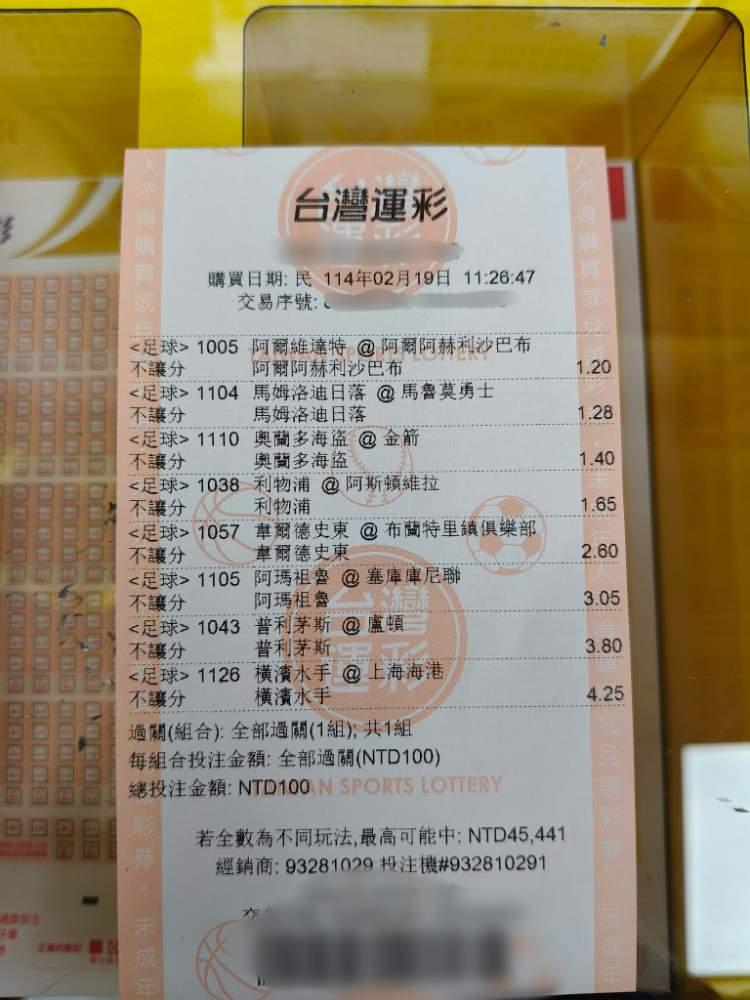 台灣運彩
購買日期: 民 114年02月19日 11:26:47
交易序號:
<足球> 1005 阿爾維達特 @ 阿爾阿赫利沙巴布
不讓分 阿爾阿赫利沙巴布 1.20
<足球> 1104 馬姆洛迪日落 @ 馬魯莫勇士
不讓分 馬姆洛迪日落 1.28
<足球> 1110 奧蘭多海盜 @ 金箭
不讓分 奧蘭多海盜 1.40
<足球> 1038 利物浦 @ 阿斯頓維拉
不讓分 利物浦 1.65
<足球> 1057 韋爾德史東 @ 布蘭特里鎮俱樂部
不讓分 韋爾德史東 2.60
<足球> 1105 阿瑪祖魯 @ 塞庫庫尼聯
不讓分 阿瑪祖魯 3.05
<足球> 1043 普利茅斯 @ 盧頓
不讓分 普利茅斯 3.80
<足球> 1126 橫濱水手 @ 上海海港
不讓分 橫濱水手 4.25
過關(組合): 全部過關(1組); 共1組
每組合投注金額: 全部過關(NTD100)
總投注金額: NTD100
SPORTS LOTTERY
若全數為不同玩法,最高可能中: NTD45,441
經銷商: 93281029 投注機#932810291